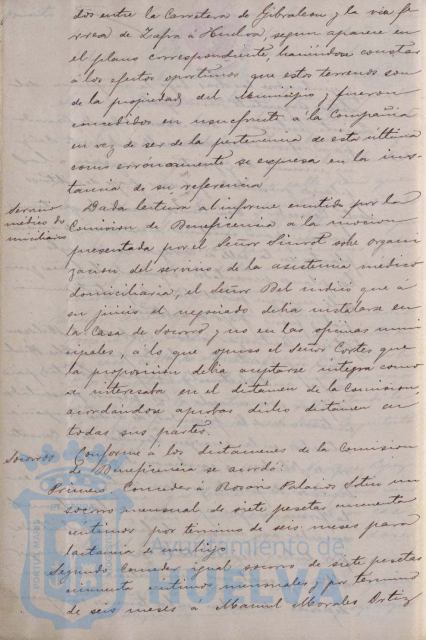 dos entre la Carretera de Gibraleon y la via fe-
rrea de Zafra á Huelva, segun aparece en
el plano correspondiente, haciéndose constar
á los efectos oportunos que estos terrenos son
de la propiedad del Municipio y fueron
concedidos en usufructo á la Compañia
en vez de ser de la pertenencia de ésta última
como erróneamente se expresa en la ins-
tancia de su referencia
Servicio
médico do-
miciliario
Dada lectura al informe emitido por la
Comision de Beneficencia á la mocion
presentada por el Señor Sinrot sobre organi-
zacion del servicio de la asistencia médico
domiciliaria, el Señor Bel indicó que á
su juicio el negociado debia instalarse en
la Casa de Socorro y no en las oficinas muni-
cipales, á lo que opuso el Señor Cortés que
la proposicion debia aceptarse íntegra como
se interesaba en el dictámen de la Comision,
acordándose aprobar dicho dictámen en
todas sus partes
Socorros
Conforme á los dictámenes de la Comision
de Beneficencia se acordó:
Primero Conceder á Rosario Palacios un
socorro mensual de siete pesetas cincuenta
céntimos por término de seis meses para
lactancia de un hijo
Segundo Conceder igual socorro de siete pesetas
cincuenta céntimos mensuales y por término
de seis meses á Manuel Morales Ortiz
Ayuntamiento de
HUELVA